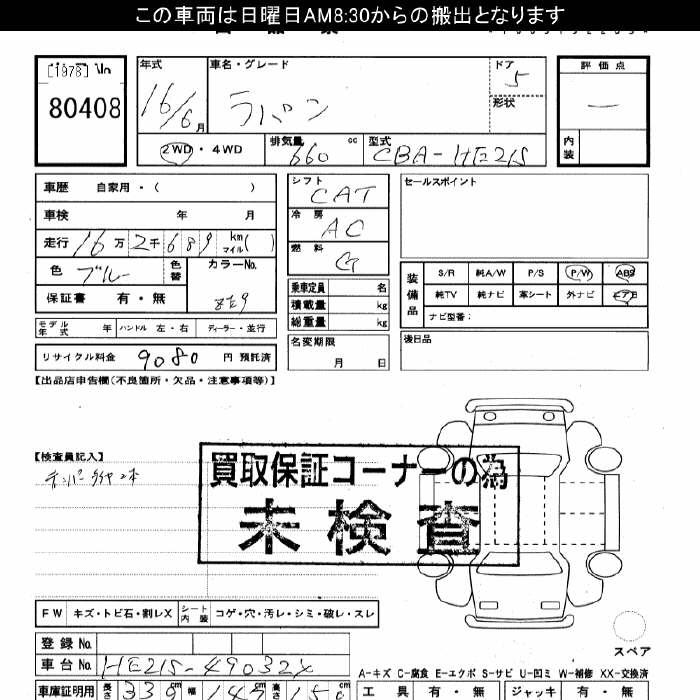 この車両は日曜日AM8:30からの搬出となります
[1978] No
80408
年式 車名・グレード ドア 評価点
16/6月 ラパン 5 —
形状
2WD・4WD 排気量 660 cc 型式 CBA-HE21S 内装
車歴 自家用・( )
車検 年 月
走行 16万2千689 km マイル ( )
色 ブルー 色替 カラーNo. ZE9
保証書 有・無
モデル年式 年 ハンドル 左・右 ディーラー・並行
リサイクル料金 9080 円 預託済
シフト CAT
冷房 AC
燃料 G
乗車定員 名
積載量 kg
総重量 kg
名変期限
月 日
セールスポイント
装備品 S/R 純A/W P/S P/W ABS
純TV 純ナビ 革シート 外ナビ エアB
ナビ型番:
後日品
【出品店申告欄(不良箇所・欠品・注意事項等)】
【検査員記入】
テンパータイヤ2本
買取保証コーナーの為
未検査
FW キズ・トビ石・割レX シート内装 コゲ・穴・汚レ・シミ・破レ・スレ
スペア
登録No.
車台No. HE21S-490324
A-キズ C-腐食 E-エクボ S-サビ U-凹ミ W-補修 XX-交換済
車庫証明用 長さ 339cm 幅 147cm 高さ 150 工具 有・無 ジャッキ 有・無